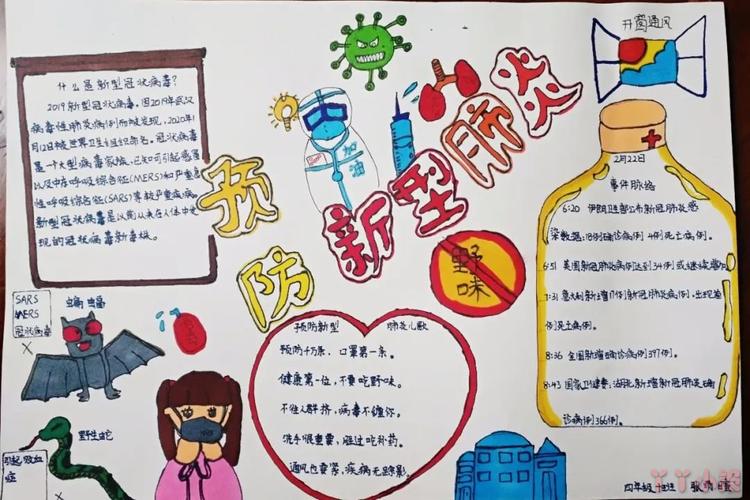 什么是新型冠状病毒?
2019新型冠状病毒,因2019年武汉
病毒性肺炎病例而被发现,2020年1
月12日被世界卫生组织命名。冠状病毒
是一个大型病毒家族,已知可引起感冒
以及中东呼吸综合征(MERS)和严重急
性呼吸综合征(SARS)等较严重疾病。
新型冠状病毒是以前从未在人体中发
现的冠状病毒新毒株。
预防新型肺炎
加油
野味
开窗通风
2月22日
事件脉络
6:20 伊朗卫生部公布新冠肺炎感
染数据:18例确诊病例 4例死亡病例。
6:51 美国新冠肺炎病例达到34例 或继续增加
7:31 意大利新增17例新冠肺炎病例,出现首
例死亡病例。
8:36 全国新增确诊病例397例。
8:43 国家卫健委:湖北新增新冠肺炎确
诊病例366例。
SARS
MERS
冠状病毒
X
蝙蝠
野生蛇
引起败血
症
X
预防新型 肺炎儿歌
预防千万条,口罩第一条。
健康第一位,不要吃野味。
不往人群挤,病毒不缠你。
洗手很重要,胜过吃补药。
通风也要常,疾病无踪影。
四年级
丫丫小报